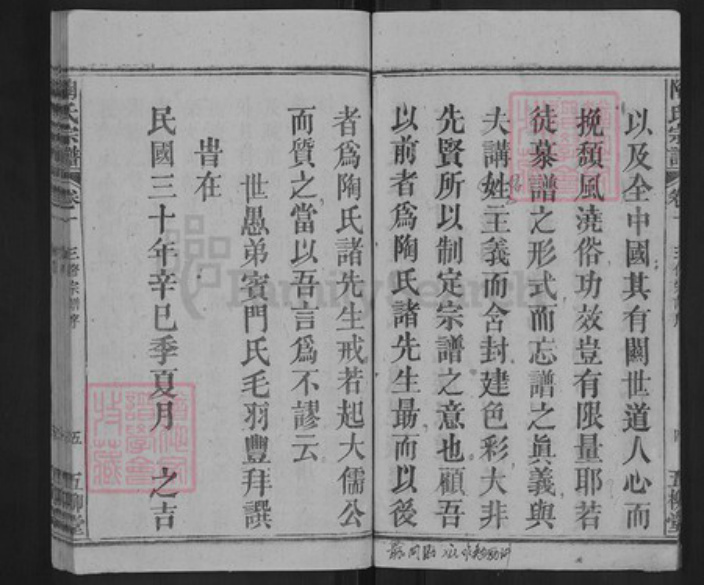 以及全中國其有關世道人心而
挽頹風澆俗功效豈有限量耶若
徒慕譜之形式而忘譜之眞義與
夫講姓主義而含封建色彩大非
先賢所以制定宗譜之意也顧吾
以前者爲陶氏諸先生勗而以後
者爲陶氏諸先生戒若起大儒公
而質之當以吾言爲不謬云
世愚弟賓門氏毛羽豐拜譔
旹在
民國三十年辛巳季夏月 之吉
陶氏宗譜
卷一
三修宗譜序
五
五柳堂
FamilySearch